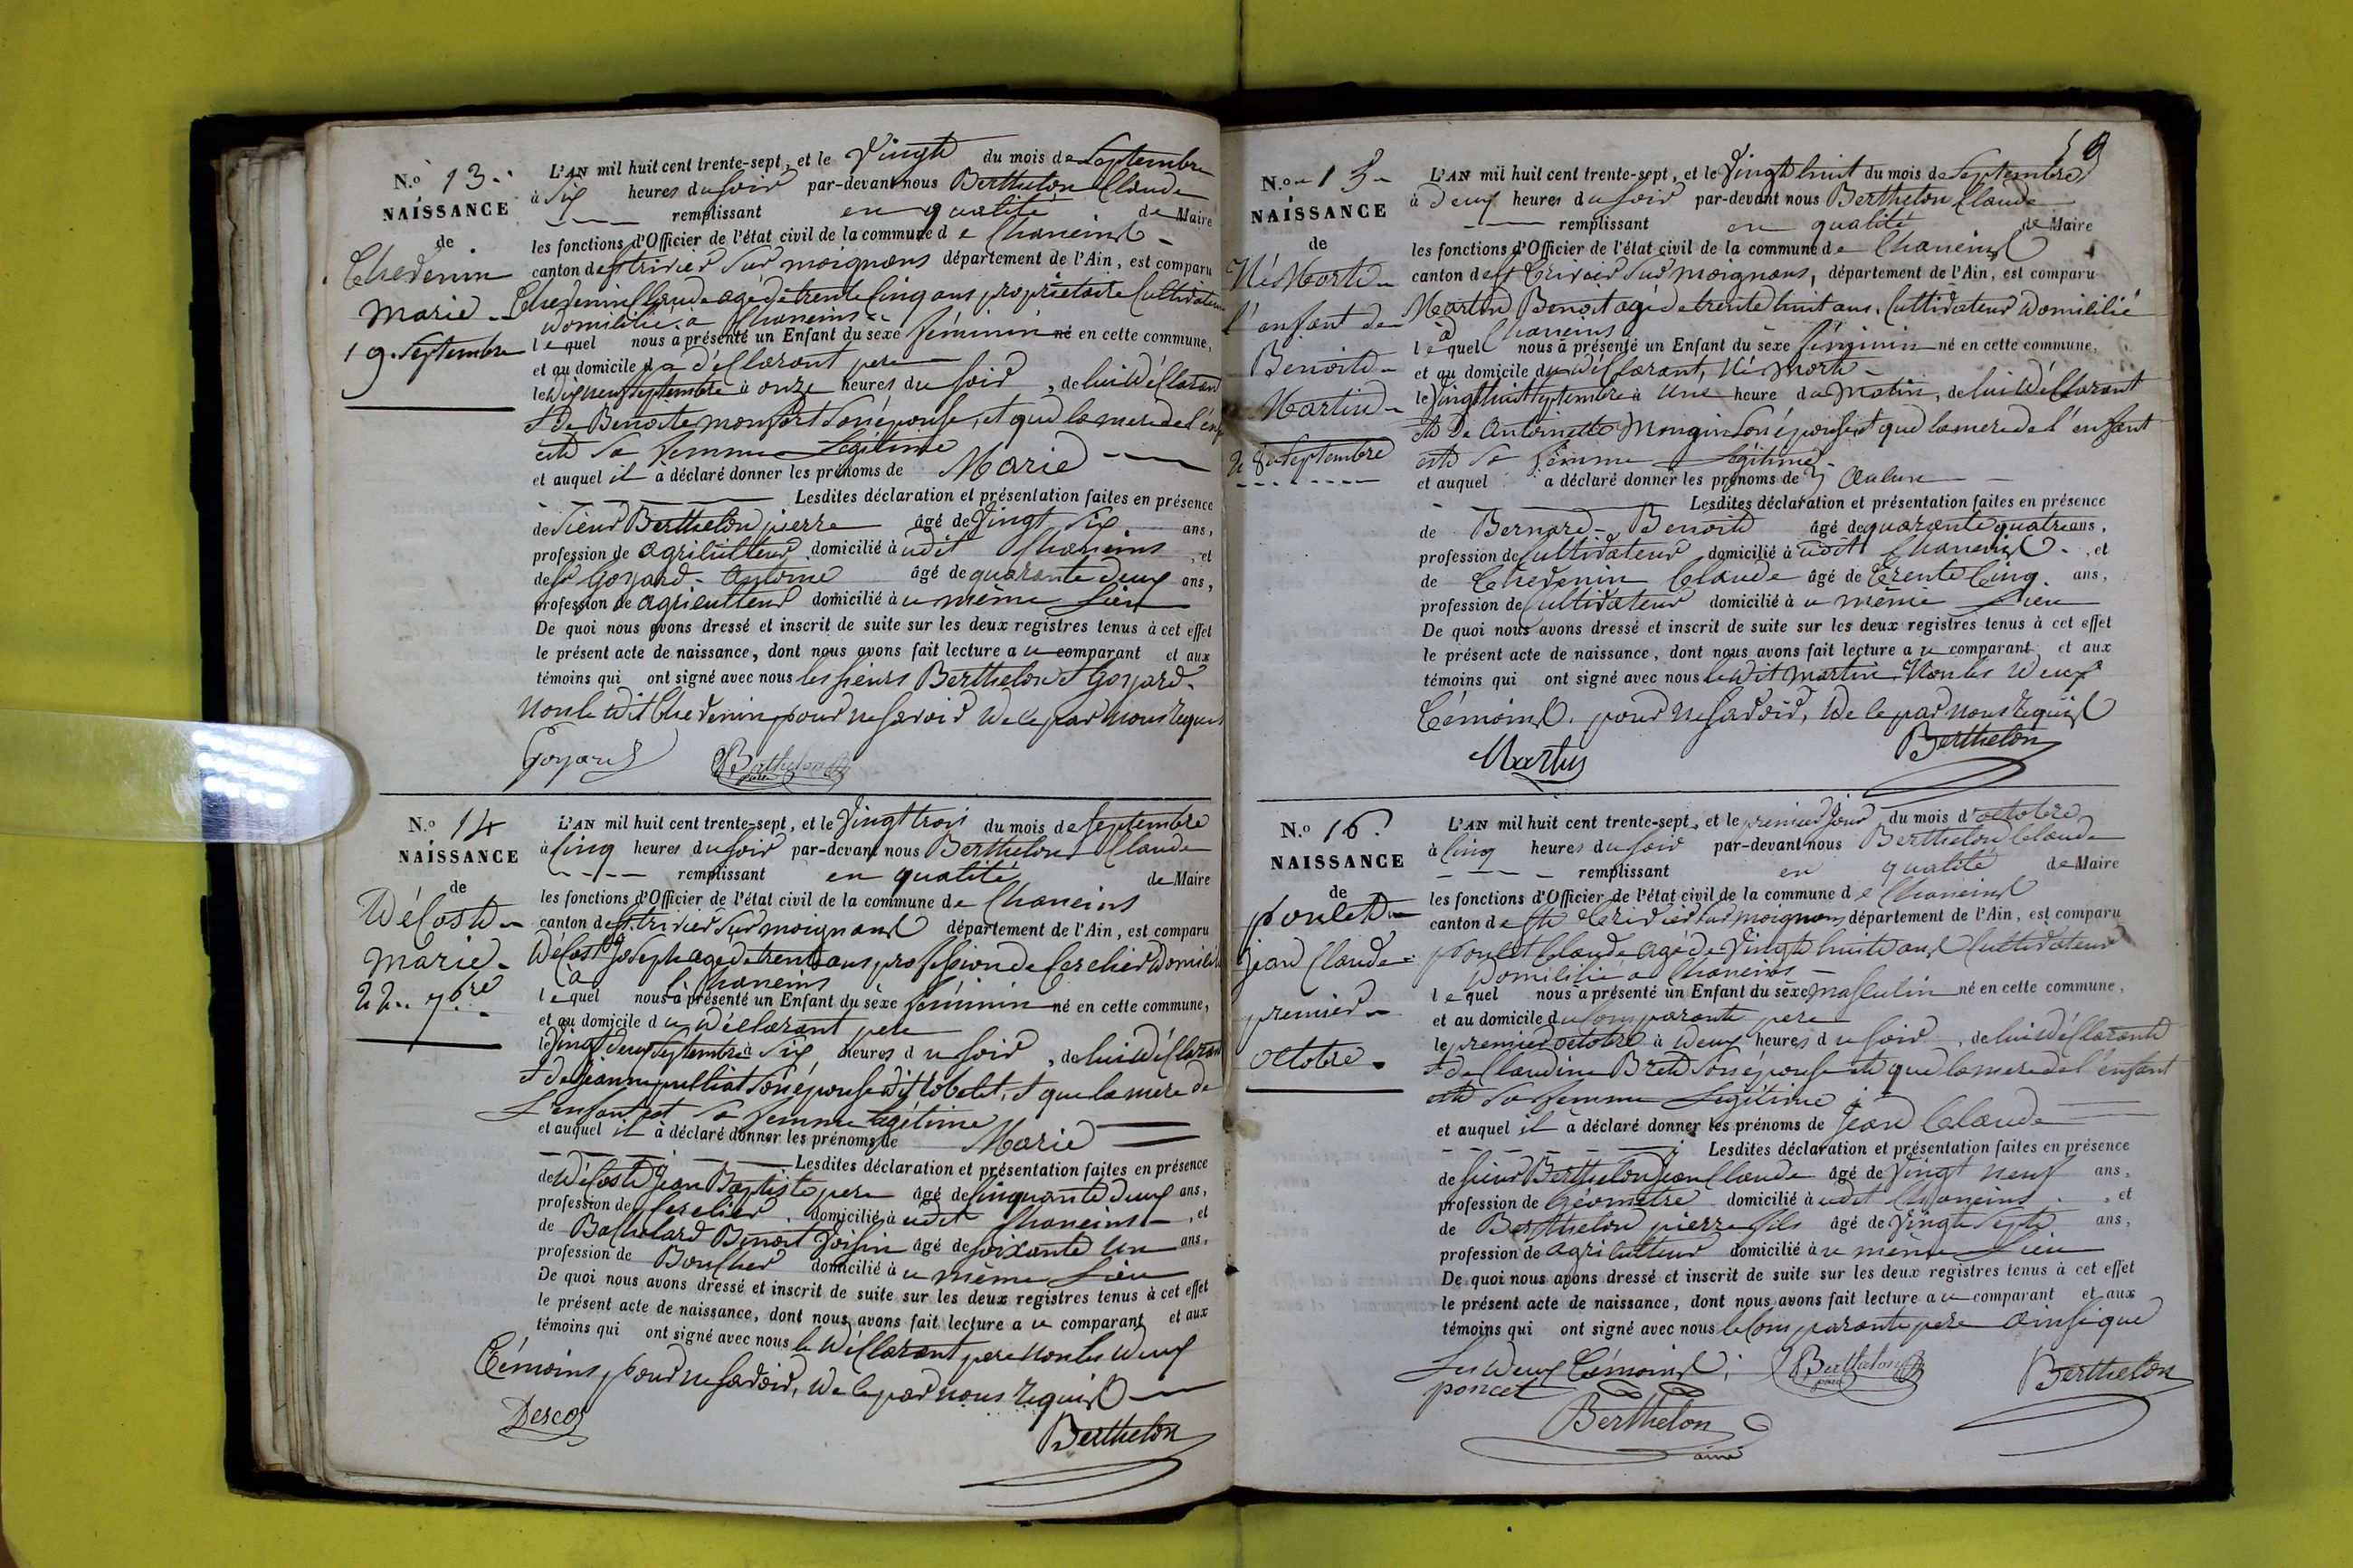 N.o 13.
NAISSANCE
de
Thevenin
Marie
19. Septembre
L'AN mil huit cent trente-sept, et le Vingt du mois de Septembre
à Six heures du soir par-devant nous Berthelon Claude
remplissant en qualité de Maire
les fonctions d'Officier de l'état civil de la commune de Chaneins
canton de St trivier Sur moignans département de l'Ain, est comparu
Thevenin Claude agé de trente Cinq ans propriétaire Cultivateur
domicilié à Chaneins
lequel nous a présenté un Enfant du sexe féminin né en cette commune,
et au domicile du déclarant pere
le dix neuf Septembre à onze heures du soir, de lui déclarant
et de Benoite monfort Son épouse, et que la mere de l'enf
est Sa femme Légitime
et auquel il à déclaré donner les prénoms de Marie
Lesdites déclaration et présentation faites en présence
de Sieur Berthelon pierre âgé de Vingt Six ans,
profession de agriculteur domicilié à udit Chaneins, et
de Sr Goyard Antoine âgé de quarante deux ans,
profession de agriculteur domicilié à u même Lieu
De quoi nous avons dressé et inscrit de suite sur les deux registres tenus à cet effet
le présent acte de naissance, dont nous avons fait lecture au comparant et aux
témoins qui ont signé avec nous les sieurs Berthelon et Goyard
non le dit Thevenin pour ne savoir de ce par nous requis
Goyard Berthelon
N.o 14
NAISSANCE
de
Décost
Marie
22. 7bre
L'AN mil huit cent trente-sept, et le Vingt trois du mois de Septembre
à Cinq heures du soir par-devant nous Berthelon Claude
remplissant en qualité de Maire
les fonctions d'Officier de l'état civil de la commune de Chaneins
canton de St. trivier Sur moignans département de l'Ain, est comparu
Décost Joseph agé de trente ans profession de Cerclier Domicilié
à Chaneins
lequel nous à présenté un Enfant du sexe féminin né en cette commune,
et au domicile du déclarant pere
le Vingt deux Septembre à Six heures du soir, de lui déclarant
et de Jeanne pulliat Son épouse dit, et que la mere de
L'enfant est Sa femme Légitime
et auquel il à déclaré donner les prénoms de Marie
Lesdites déclaration et présentation faites en présence
de Décost Jean Baptiste pere âgé de Cinquante deux ans,
profession de Cerclier domicilié à udit Chaneins, et
de Bachelard Benoit Voisin âgé de soixante un ans,
profession de Boucher domicilié à u même Lieu
De quoi nous avons dressé et inscrit de suite sur les deux registres tenus à cet effet
le présent acte de naissance, dont nous avons fait lecture au comparant et aux
témoins qui ont signé avec nous le déclarant pere non les deux
Témoins, pour ne savoir, de ce par nous requis
Descos
Berthelon
59
N.o 15
NAISSANCE
de
Né Morte
l'enfant de
Benoit
Martin
28 Septembre
L'AN mil huit cent trente-sept, et le Vingt huit du mois de Septembre
à Deux heures du soir par-devant nous Berthelon Claude
remplissant en qualité de Maire
les fonctions d'Officier de l'état civil de la commune de Chaneins
canton de St Trivier Sur moignans, département de l'Ain, est comparu
Martin Benoit agé de trente huit ans. Cultivateur domicilié
à Chaneins
lequel nous à présenté un Enfant du sexe féminin né en cette commune,
et au domicile du déclarant, Né Morte
le Vingt huit Septembre à Une heure du Matin, de lui déclarant
et De Antoinette Mongin Son épouse, et que la mere de l'enfant
est Sa femme Légitime
et auquel a déclaré donner les prénoms de
Lesdites déclaration et présentation faites en présence
de Bernard Benoit âgé de quarante quatre ans,
profession de Cultivateur domicilié à udit Chaneins, et
de Thevenin Claude âgé de Trente Cinq ans,
profession de Cultivateur domicilié à u même Lieu
De quoi nous avons dressé et inscrit de suite sur les deux registres tenus à cet effet
le présent acte de naissance, dont nous avons fait lecture au comparant et aux
témoins qui ont signé avec nous le dit Martin Non les deux
Témoins. pour ne savoir, de ce par nous requis
Martin Berthelon
N.o 16.
NAISSANCE
de
poncet
jean Claude
premier
octobre
L'AN mil huit cent trente-sept, et le premier jour du mois d'octobre
à Cinq heures du soir par-devant nous Berthelon Claude
remplissant en qualité de Maire
les fonctions d'Officier de l'état civil de la commune de Chaneins
canton de St Trivier Sur moignans département de l'Ain, est comparu
poncet Claude agé de Vingt huit ans Cultivateur
domicilié a Chaneins
lequel nous a présenté un Enfant du sexe masculin né en cette commune,
et au domicile du Comparant pere
le premier octobre à deux heures du soir, de lui déclarant
et de Claudine Bret Son épouse et que la mere de l'enfant
est Sa femme Légitime
et auquel il à déclaré donner les prénoms de Jean Claude
Lesdites déclaration et présentation faites en présence
de Sieur Berthelon Jean Claude âgé de Vingt neuf ans,
profession de Géometre domicilié à udit Chaneins, et
de Berthelon pierre fils âgé de Vingt Sept ans,
profession de agriculteur domicilié à u même Lieu
De quoi nous avons dressé et inscrit de suite sur les deux registres tenus à cet effet
le présent acte de naissance, dont nous avons fait lecture au comparant et aux
témoins qui ont signé avec nous le Comparant pere ainsi que
Les deux Témoins
poncet Berthelon Berthelon
Berthelon
ainé